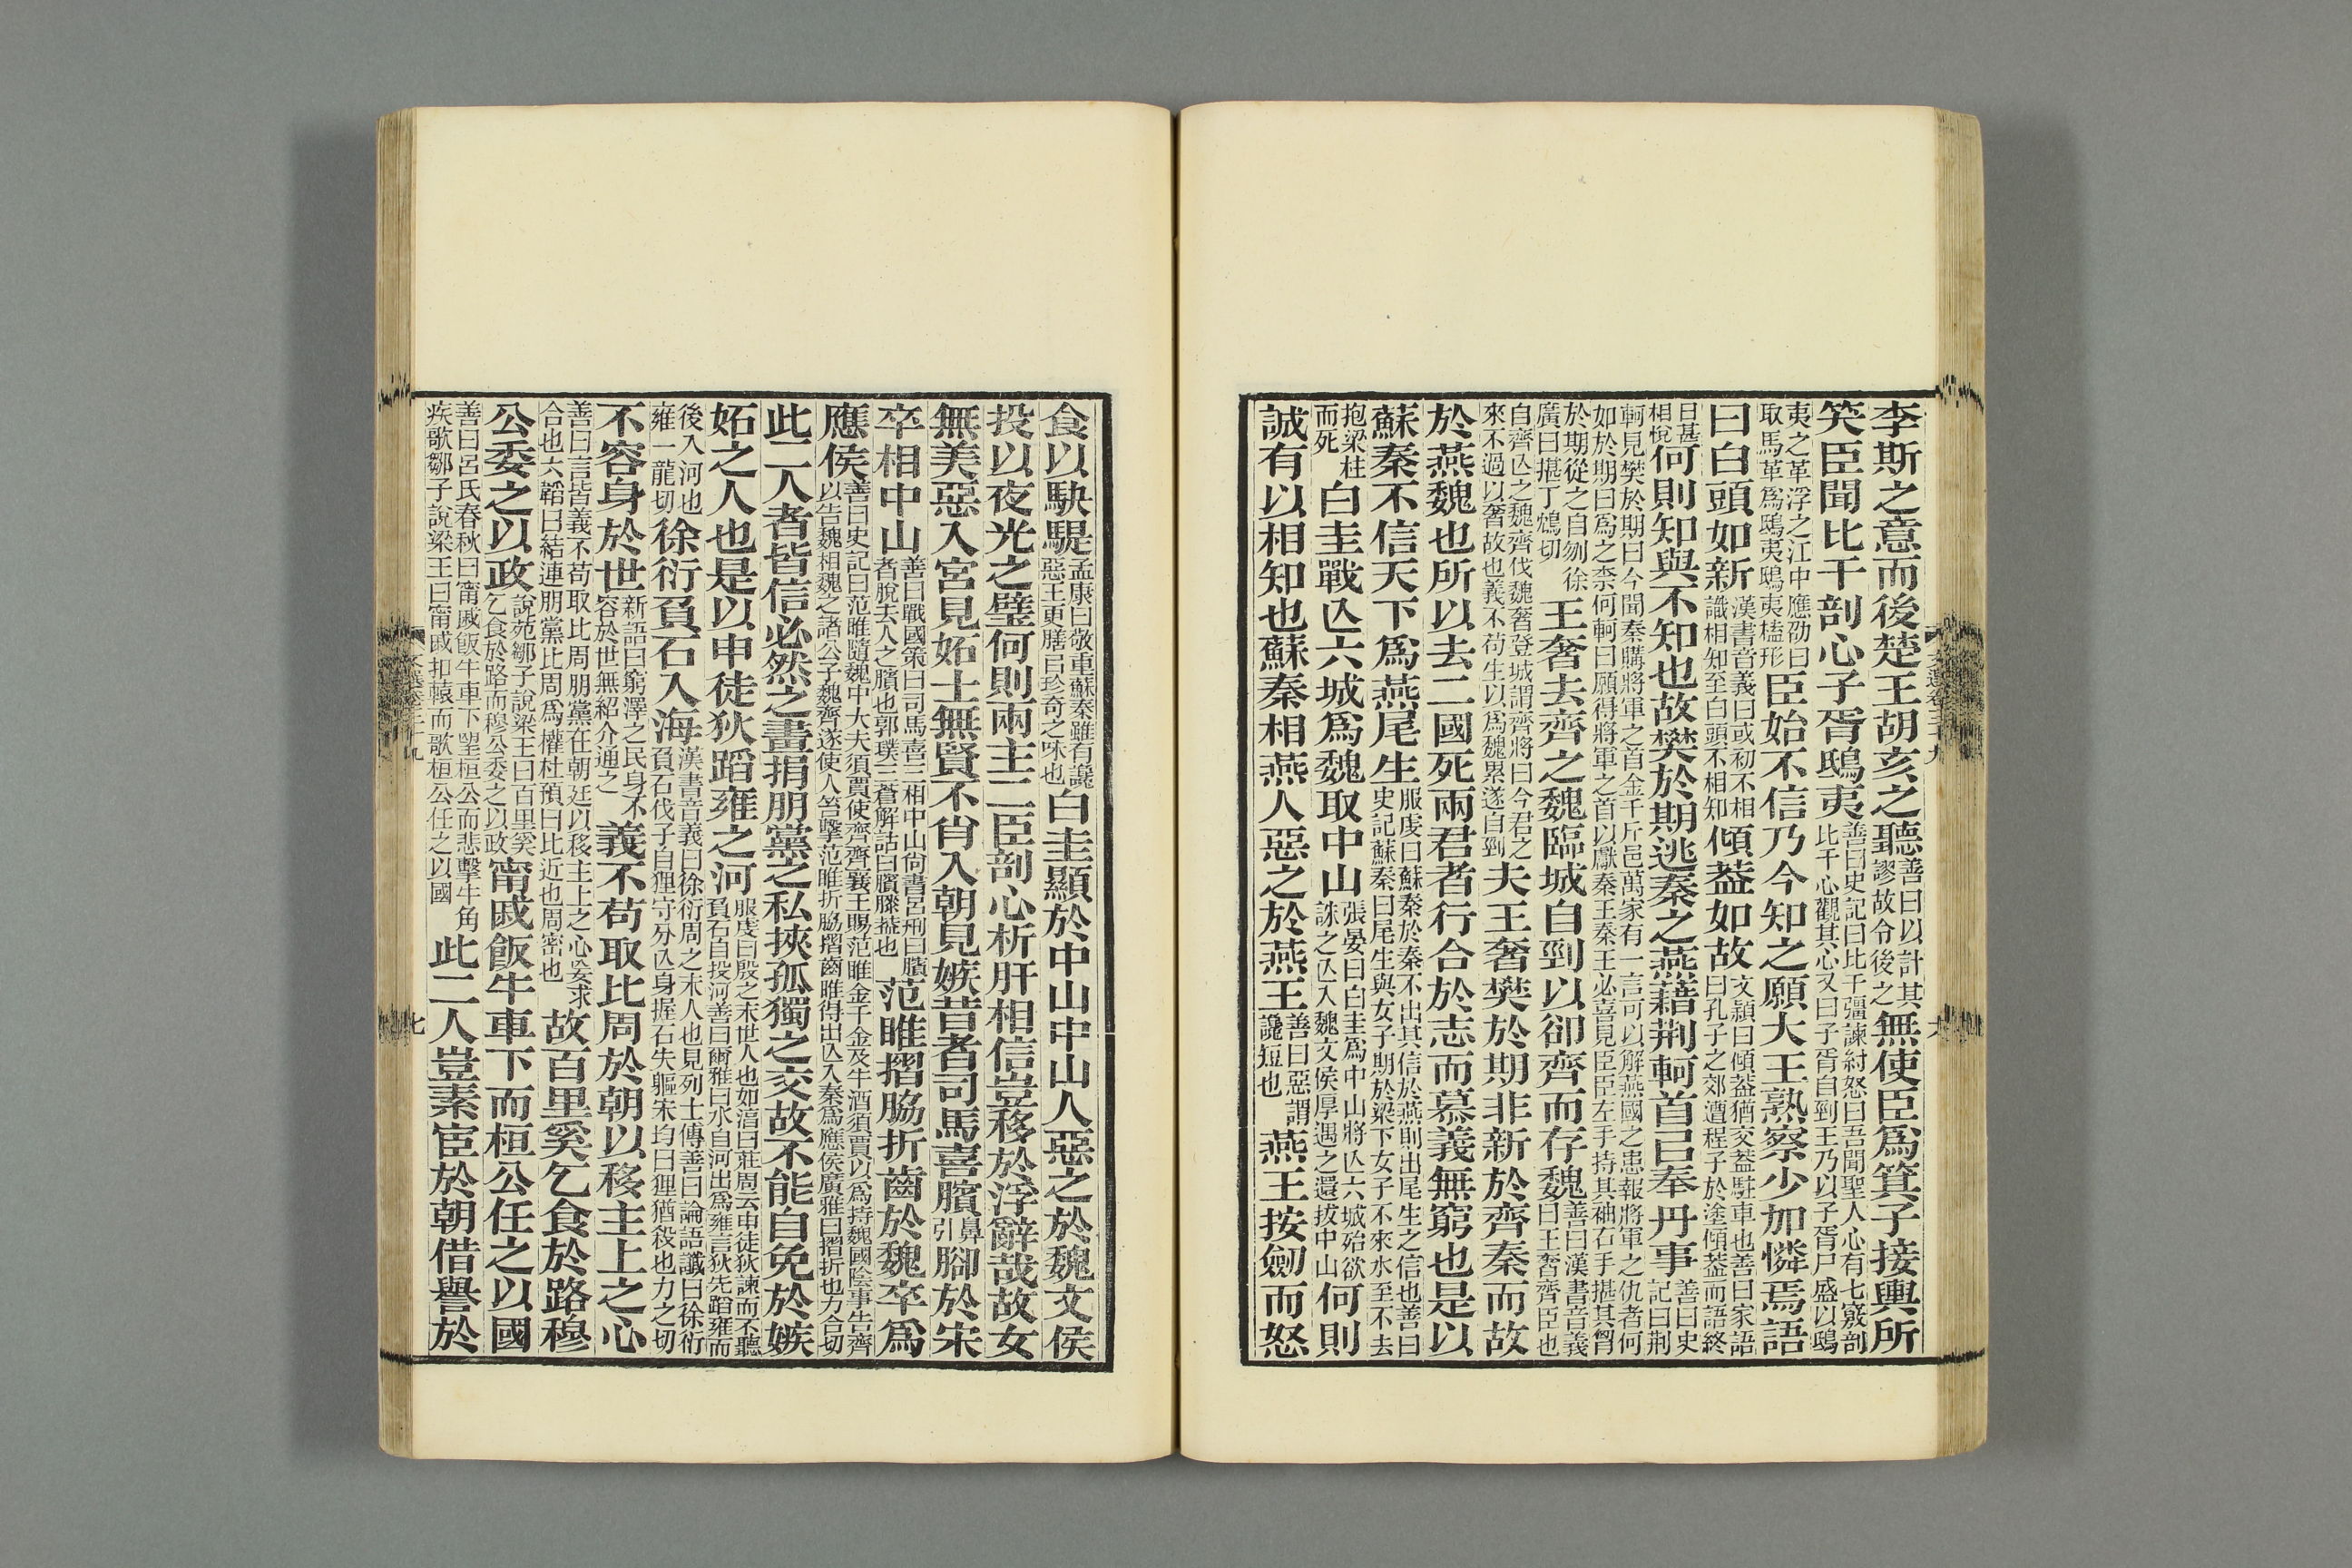 李斯之意而後楚王胡亥之聽善曰以計其謬故令後之無使臣爲箕子接輿所
笑臣聞比干剖心子胥鴟夷善曰史記曰比干彊諫紂怒曰吾聞聖人心有七竅剖比干心觀其心又曰子胥自剄王乃以子胥尸盛以鴟
夷之革浮之江中應劭曰取馬革爲鴟夷鴟夷榼形臣始不信乃今知之願大王熟察少加憐焉語
曰白頭如新漢書音義曰或初不相識相知至白頭不相知傾葢如故文穎曰傾葢猶交葢駐車也善曰家語曰孔子之郯遭程子於塗傾葢而語終
日甚相悅何則知與不知也故樊於期逃秦之燕藉荆軻首以奉丹事善曰史記曰荆
軻見樊於期曰今聞秦購將軍之首金千斤邑萬家有一言可以解燕國之患報將軍之仇者何如於期曰爲之柰何軻曰願得將軍之首以獻秦王秦王必喜見臣臣左手持其袖右手揕其胷
於期從之自刎徐廣曰揕丁鴆切王奢去齊之魏臨城自剄以卻齊而存魏善曰漢書音義曰王奢齊臣也
自齊亾之魏齊伐魏奢登城謂齊將曰今君之來不過以奢故也義不苟生以爲魏累遂自剄夫王奢樊於期非新於齊秦而故
於燕魏也所以去二國死兩君者行合於志而慕義無窮也是以
蘇秦不信天下爲燕尾生服虔曰蘇秦於秦不出其信於燕則出尾生之信也善曰史記蘇秦曰尾生與女子期於梁下女子不來水至不去
抱梁柱而死白圭戰亾六城爲魏取中山張晏曰白圭爲中山將亾六城殆欲誅之亾入魏文侯厚遇之還拔中山何則
誠有以相知也蘇秦相燕人惡之於燕王善曰惡謂讒短也燕王按劒而怒
食以駃騠孟康曰敬重蘇秦雖有讒惡王更膳以珍奇之味也白圭顯於中山中山人惡之於魏文侯
投以夜光之璧何則兩主二臣剖心析肝相信豈移於浮辭哉故女
無美惡入宮見妬士無賢不肖入朝見嫉昔者司馬喜臏鼻引腳於宋
卒相中山善曰戰國策曰司馬喜三相中山尚書呂刑曰臏者脫去人之臏也郭璞三蒼解詁曰臏膝葢也范睢摺脇折齒於魏卒爲
應侯善曰史記曰范睢隨魏中大夫須賈使齊齊襄王賜范睢金千金及牛酒須賈以爲持魏國陰事告齊以告魏相魏之諸公子魏齊遂使人笞擊范睢折脇摺齒睢得出亾入秦爲應侯廣雅曰摺折也力合切
此二人者皆信必然之畫捐朋黨之私挾孤獨之交故不能自免於嫉
妬之人也是以申徒狄蹈雍之河服虔曰殷之末世人也如淳曰莊周云申徒狄諫而不聽負石自投河善曰爾雅曰水自河出爲雍言狄先蹈雍而
後入河也雍一龍切徐衍負石入海漢書音義曰徐衍周之末人也見列士傳善曰論語讖曰徐衍負石伐子自狸守分亾身握石失軀宋均曰狸猶殺也力之切
不容身於世新語曰窮澤之民身不容於世無紹介通之義不苟取比周於朝以移主上之心
善曰言皆義不苟取比周朋黨在朝廷以移主上之心妄求合也六韜曰結連朋黨比周爲權杜預曰比近也周密也故百里奚乞食於路穆
公委之以政說苑鄒子說梁王曰百里奚乞食於路而穆公委之以政甯戚飯牛車下而桓公任之以國
善曰呂氏春秋曰甯戚飯牛車下望桓公而悲擊牛角疾歌鄒子說梁王曰甯戚扣轅而歌桓公任之以國此二人豈素宦於朝借譽於
七